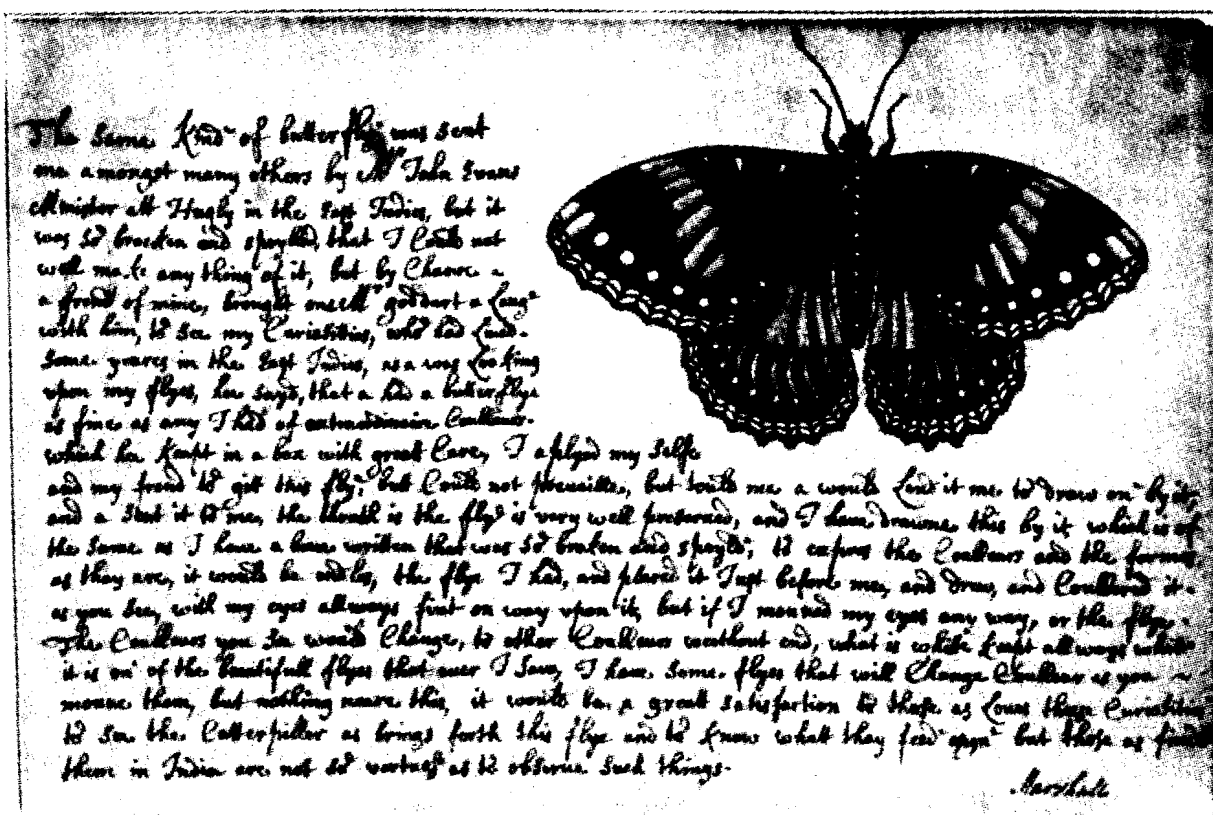 The same Kind of butterflye was sent
me amongst many others by Mr John Evans
Minister att Hugly in the East Indies, but it
was so brocken and spoylled, that I Could not
well make any thing of it, but by Chance a
a frend of mine, brought one
with him, to see my Curiosities, who had Lived
some yeares in the East Indies, as a was Looking
upon my flyes, hee sayd, that a had a butterflye
as fine as any I had of extraordinaire Coulleurs
which hee Keept in a box with great Care, I aplyed my selfe
and my frend to gett this flye, but Could not prevaille, but tould me a would Lend it me to draw on by it,
and a sent it to me, the thruth is the flye is very well preserved, and I have drawne this by it which is of
the same as I have a bove written that was so broken and spoyld, to expres the Coulleurs and the formes
as they are, it would be endles, the flye I had, and placed it Just before me, and drew, and Coullered it
as you see, with my eyes allways fixt on way upon it, but if I moved my eyes any way, or the flye
The Coulleurs you see would Change, to other Coulleurs without end, what is white keept allways white
it is on of the beautifull flyes that ever I saw, I have some flyes that will Change Coulleur as you
move them, but nothing neare this, it would be a greatt satisfaction to those as Loves these Curiosities
to see the Catterpiller as brings forth this flye and to know whatt they feed upon but those as finds
them in India are not so as to observe such things.
Marshall